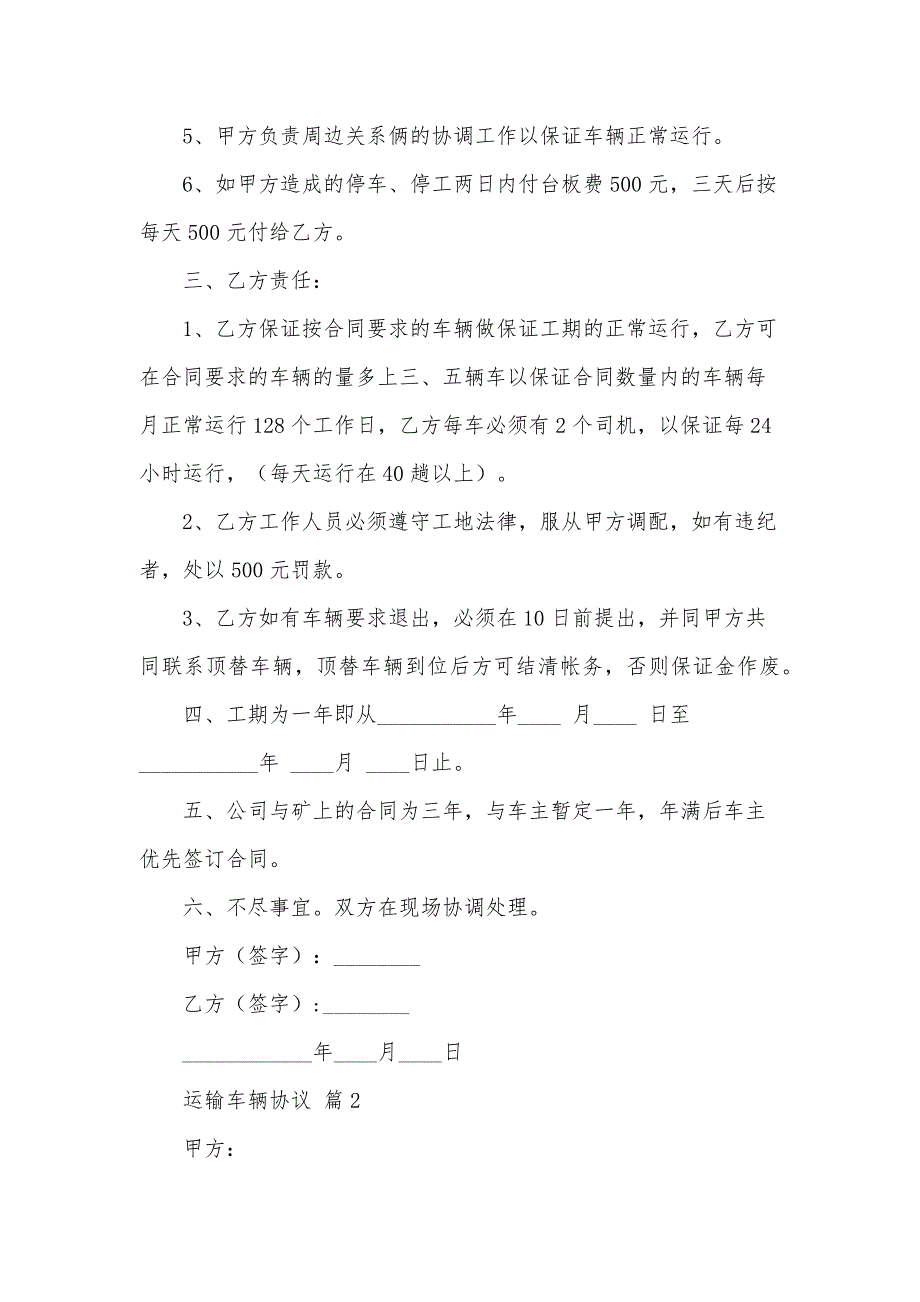 5、甲方负责周边关系俩的协调工作以保证车辆正常运行。
6、如甲方造成的停车、停工两日内付台板费 500 元，三天后按
每天 500 元付给乙方。
三、乙方责任：
1、乙方保证按合同要求的车辆做保证工期的正常运行，乙方可
在合同要求的车辆的量多上三、五辆车以保证合同数量内的车辆每
月正常运行 128 个工作日，乙方每车必须有 2 个司机，以保证每 24
小时运行，（每天运行在 40 趟以上）。
2、乙方工作人员必须遵守工地法律，服从甲方调配，如有违纪
者，处以 500 元罚款。
3、乙方如有车辆要求退出，必须在 10 日前提出，并同甲方共
同联系顶替车辆，顶替车辆到位后方可结清帐务，否则保证金作废。
四、工期为一年即从___________年____ 月____ 日至
___________年 ____月 ____日止。
五、公司与矿上的合同为三年，与车主暂定一年，年满后车主
优先签订合同。
六、不尽事宜。双方在现场协调处理。
甲方（签字）：________
乙方（签字）:________
____________年____月____日
运输车辆协议 篇 2
甲方：